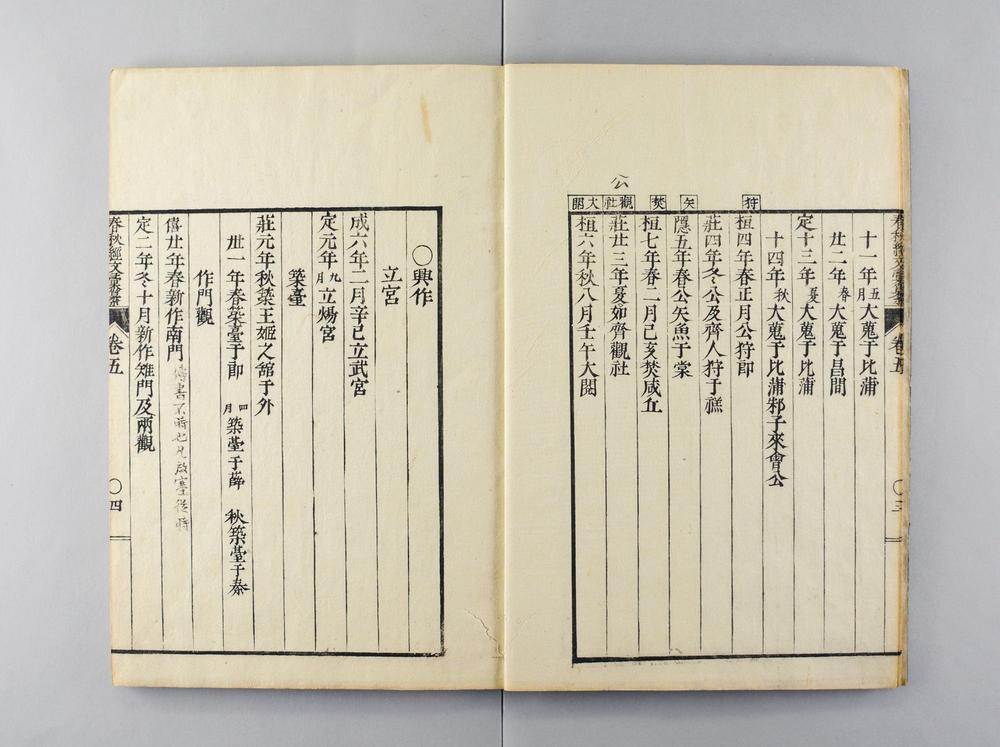 春秋經文 卷五 〇三
十一年五月大蒐于比蒲
廿二年春大蒐于昌間
定十三年夏大蒐于比蒲
十四年秋大蒐于比蒲邾子來會公
狩
桓四年春正月公狩郎
莊四年冬公及齊人狩于禚
矢
隱五年春公矢魚于棠
焚
桓七年春二月己亥焚咸丘
觀社
公
莊廿三年夏如齊觀社
大閱
桓六年秋八月壬午大閱
〇興作
立宮
成六年二月辛巳立武宮
定元年九月立煬宮
築臺
莊元年秋築王姬之舘于外
卅一年春築臺于郎 四月築臺于薛 秋築臺于秦
作門觀
僖廿年春新作南門 傳書不時也凡啟塞從時
定二年冬十月新作雉門及兩觀
春秋經文 卷五 〇四